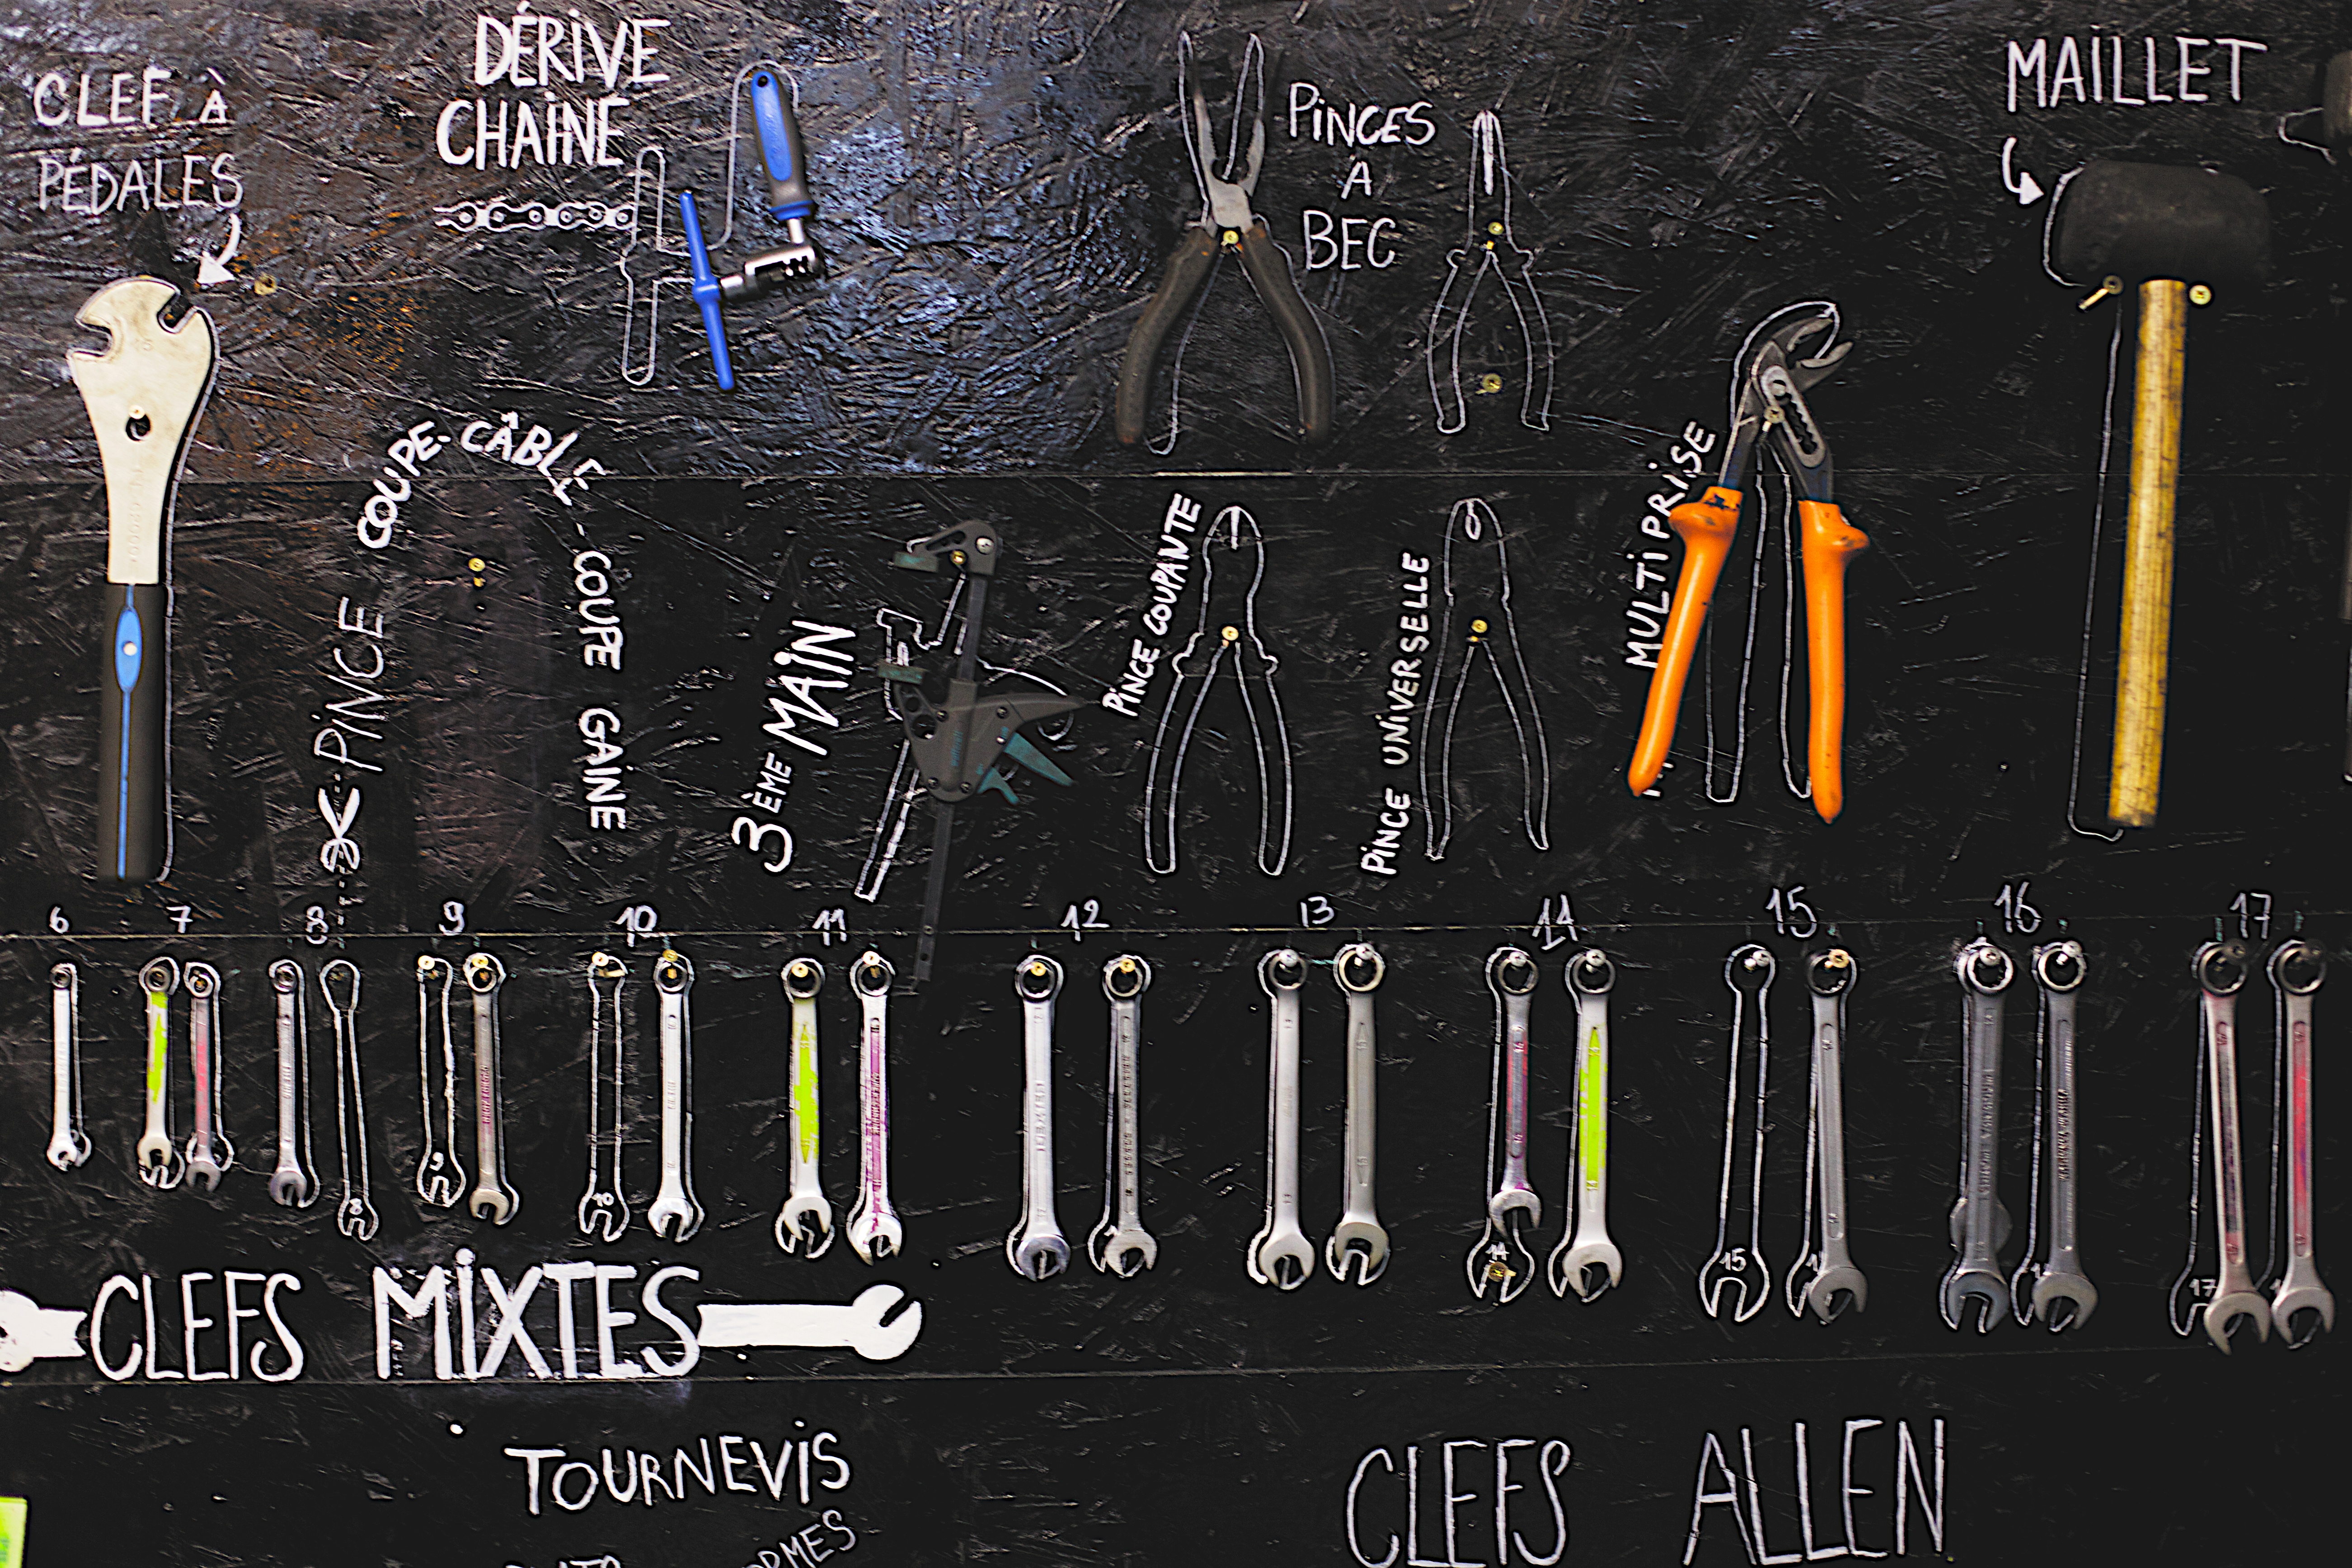 CLEF À
PÉDALES
DÉRIVE
CHAÎNE
PINCES
A
BEC
MAILLET
PINCE COUPE-CÂBLE-COUPE GAINE
3ÈME MAIN
PINCE COUPANTE
PINCE UNIVERSELLE
MULTIPRISE
6 7 8 9 10 11 12 13 14 15 16 17
8 9 10 14 15 17
CLEFS MIXTES
TOURNEVIS
CLEFS ALLEN